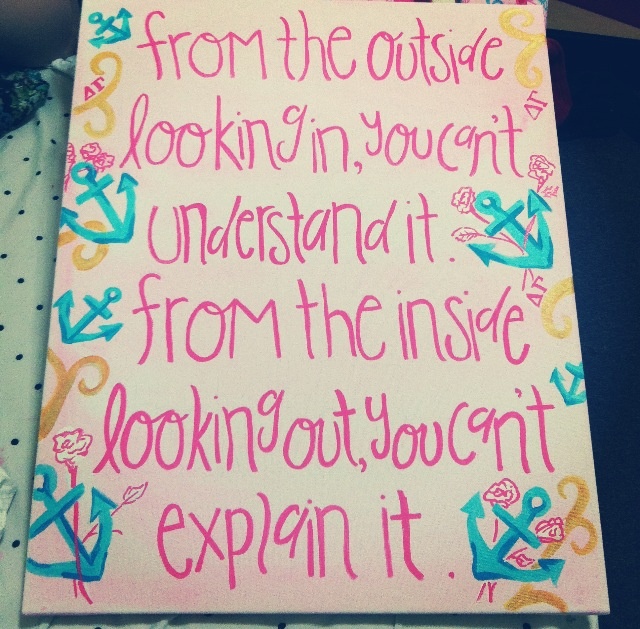 from the outside
ΔΓ
ΔΓ
looking in, you can't
understand it.
ΔΓ
from the inside
looking out, you can't
explain it.